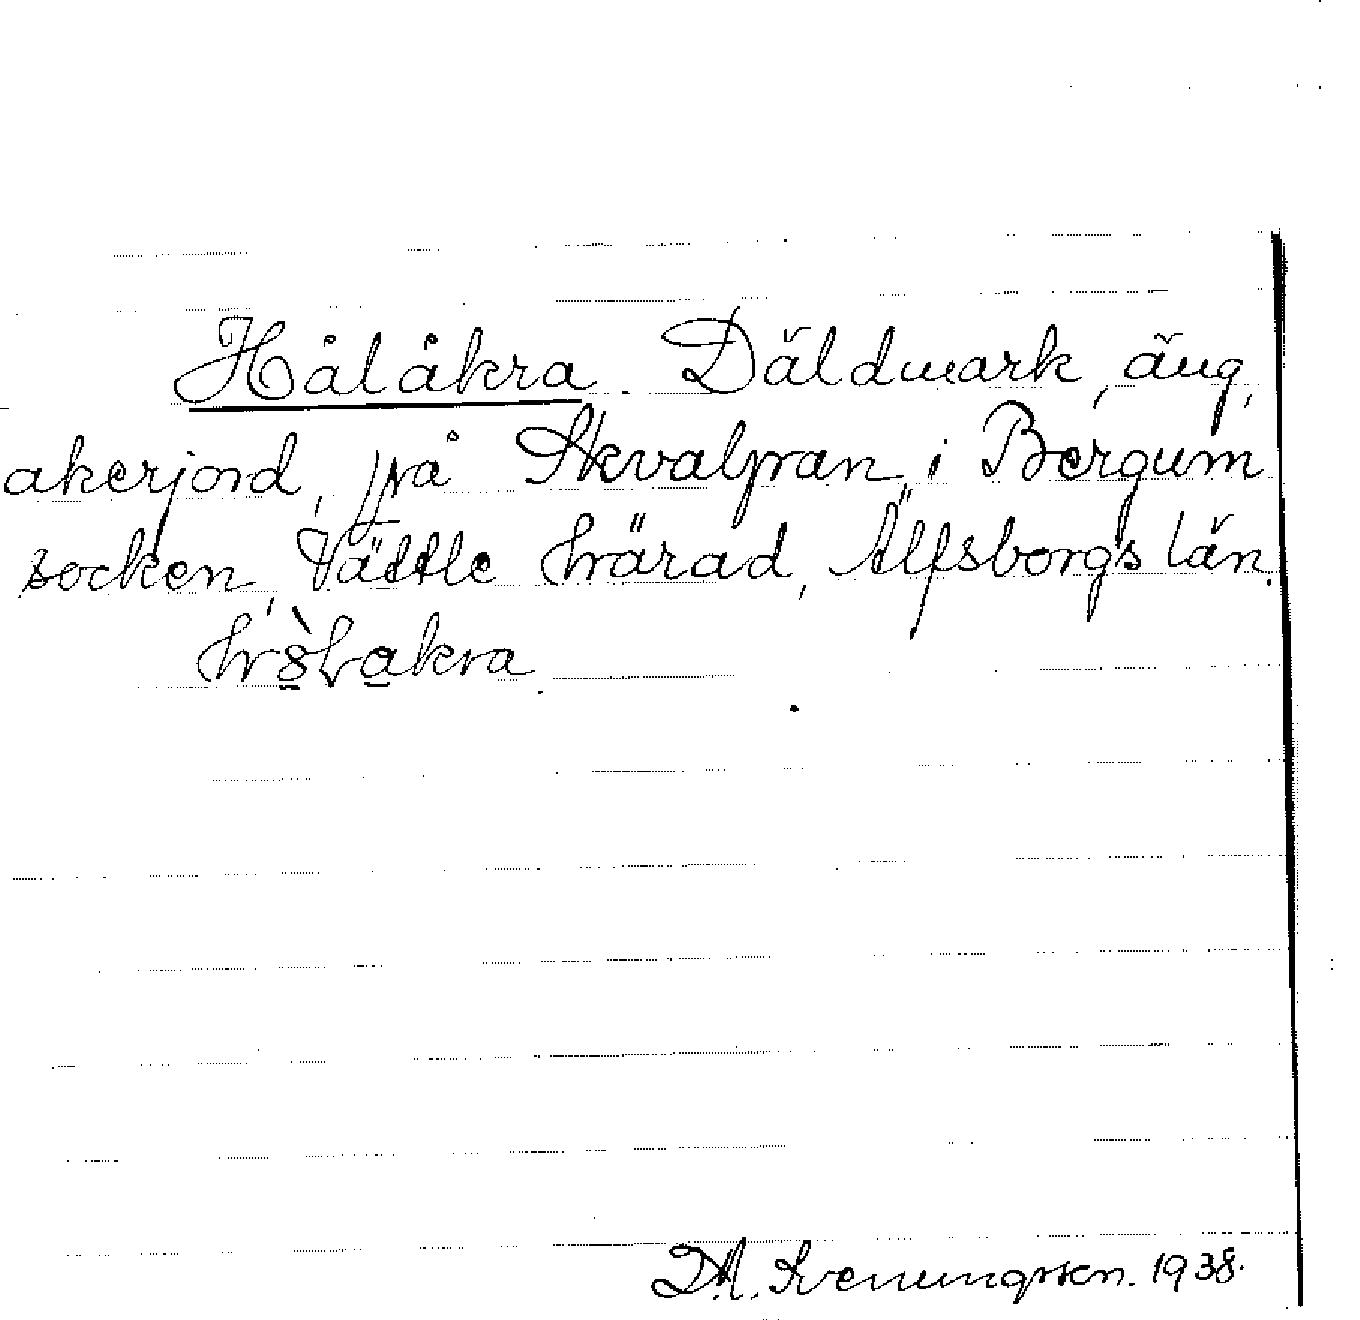 Hålåkra. Däldmark, äng,
akerjord, på Skvalpran, i Bergum
socken, Vättle härad, Älfsborgs län.
D.A. Svenungsson. 1938.